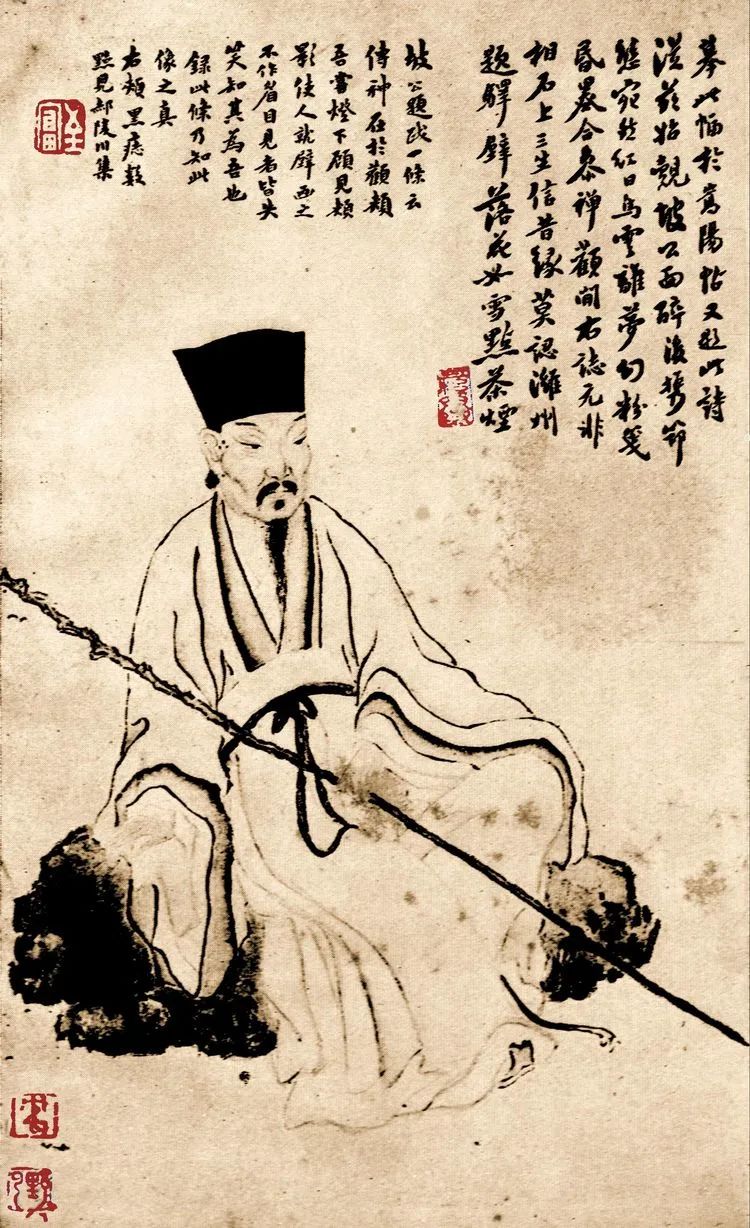 摹此幅於嵩陽帖又題此詩
從茲始覿坡公面醉後攜筇
態宛然紅日烏雲雖夢幻粉箋
昏暮合參禪顴間右誌元非
相石上三生信昔緣莫認濰州
題驛壁落花如雪點茶煙
坡公題跋一條云
傳神在於顴頰
吾嘗燈下顧見頰
影使人就壁画之
不作眉目見者皆失
笑知其為吾也
錄此條乃知此
像之真
右頰黑痣數
點見郝陵川集